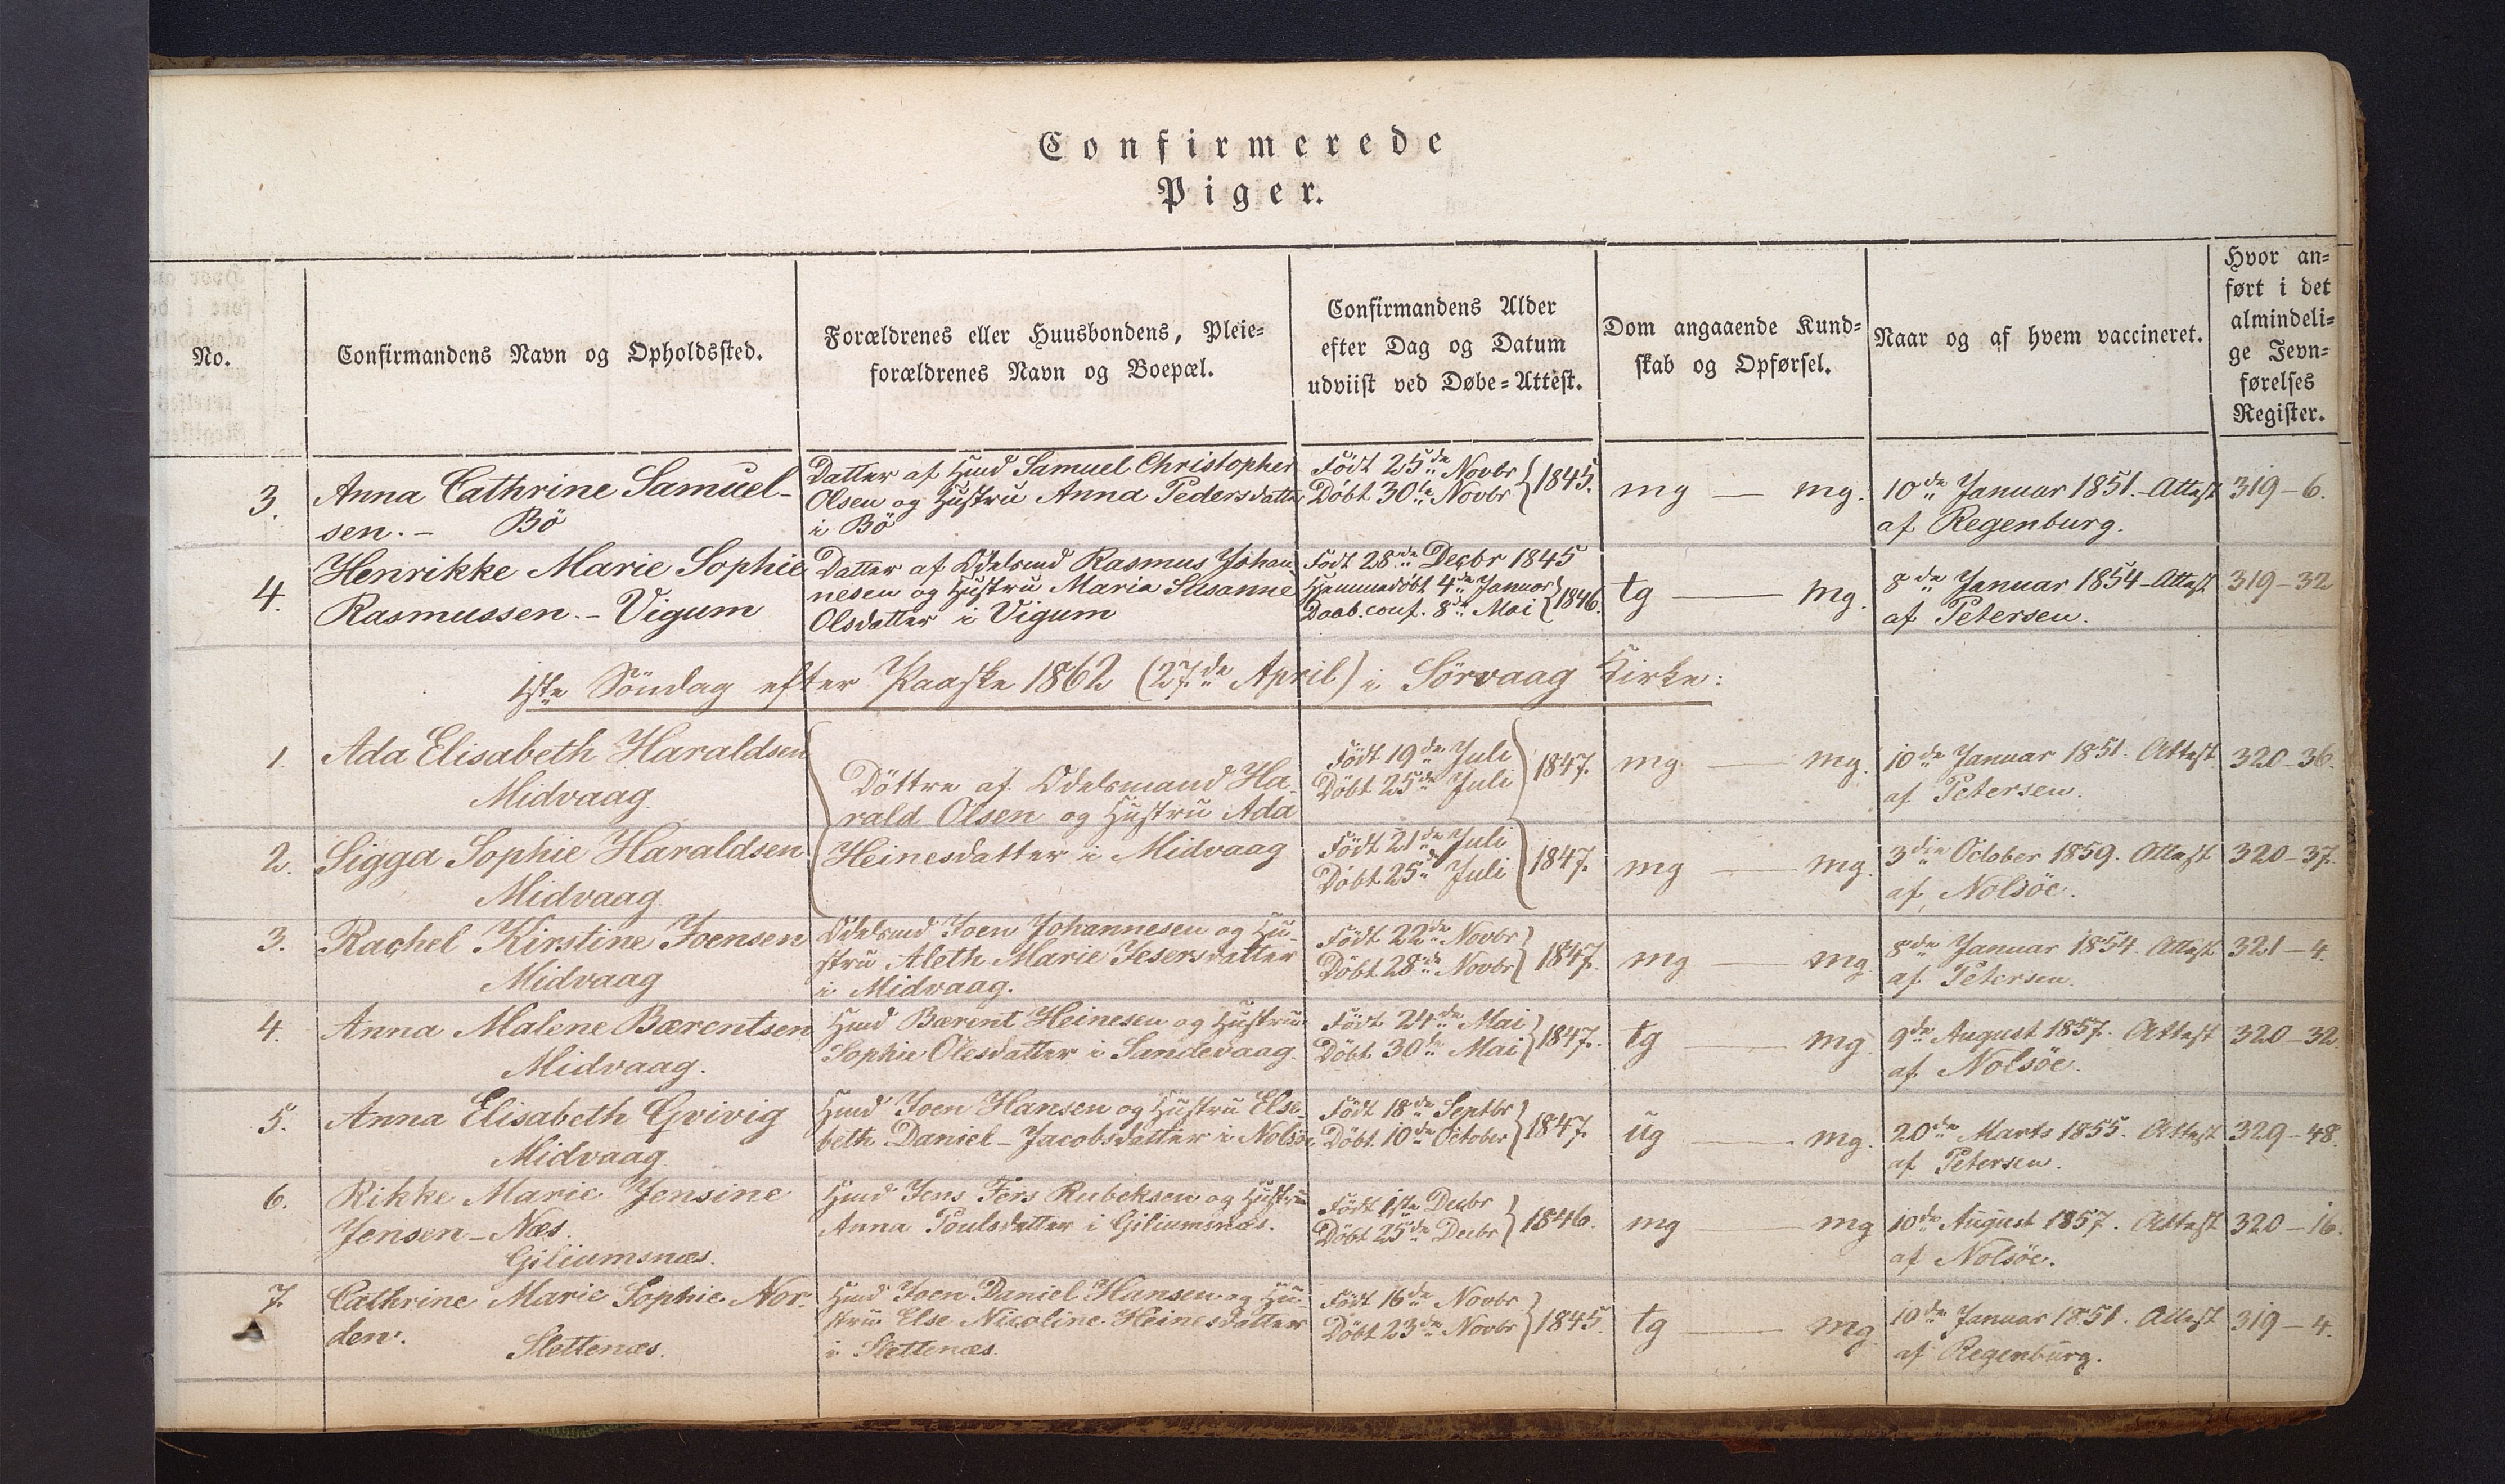 Confirmerede
Piger.
No.
Confirmandens Navn og Opholdssted.
Forældrenes eller Huusbondens, Pleie=
forældrenes Navn og Boepæl.
Confirmandens Alder
efter Dag og Datum
udviist ved Døbe=Attest.
Dom angaaende Kund=
skab og Opførsel.
Naar og af hvem vaccineret.
Hvor an=
ført i det
almindeli=
ge Jevn=
førelses
Register.
3.
Anna Cathrine Samuel-
sen. - Bö
Datter af Hmd Samuel Christopher
Olsen og Hustru Anna Pedersdatter
i Bö
Födt 25de Novbr
Döbt 30te Novbr
1845.
mg — mg.
10de Januar 1851. Attest
af Regenburg.
319-6.
4.
Henrikke Marie Sophie
Rasmussen. - Vigum
Datter af Odelsmd Rasmus Johan-
nesen og Hustru Maria Susanne
Olsdatter i Vigum
Födt 28de Decbr 1845
Hjemmedöbt 4de Januar
Daab. conf. 8de Mai
1846.
tg — mg.
8de Januar 1854 Attest
af Petersen.
319-32
1ste Söndag efter Paaske 1862 (27de April) i Sörvaag Kirke:
1.
Ada Elisabeth Haraldsen
Midvaag.
Döttre af Odelsmand Ha-
rald Olsen og Hustru Ada
Heinesdatter i Midvaag
Födt 19de Juli
Döbt 25de Juli
1847.
mg — mg.
10de Januar 1851. Attest
af Petersen.
320-36.
2.
Sigga Sophie Haraldsen
Midvaag.
Födt 21de Juli
Döbt 25de Juli
1847.
mg — mg.
3die October 1859. Attest
af Nolsöe.
320-37.
3.
Rachel Kirstine Joensen
Midvaag
Odelsmd Joen Johannesen og Hu-
stru Aleth Marie Jesersdatter
i Midvaag.
Födt 22de Novbr
Döbt 28de Novbr
1847.
mg — mg
8de Januar 1854. Attest
af Petersen.
321-4.
4.
Anna Malene Bærentsen
Midvaag.
Hmd Bærent Heinesen og Hustru
Sophie Olesdatter i Sandevaag.
Födt 24de Mai
Döbt 30de Mai
1847.
tg — mg.
9de August 1857. Attest
af Nolsöe.
320-32
5.
Anna Elisabeth Qvivig
Midvaag
Hmd Joen Hansen og Hustru Else-
beth Daniel-Jacobsdatter i Nolsöe
Födt 18de Septbr
Döbt 10de October
1847.
ug — mg.
20de Marts 1855. Attest
af Petersen.
329-48.
6.
Rikke Marie Jensine
Jensen-Næs.
Giliumsnæs.
Hmd Jens Fers Rubeksen og Hustru
Anna Poulsdatter i Giliumsnæs.
Födt 1ste Decbr
Döbt 25de Decbr
1846.
mg — mg
10de August 1857. Attest
af Nolsöe.
320-16.
7.
Cathrine Marie Sophie Nor-
den.
Slettenæs.
Hmd Joen Daniel Hansen og Hu-
stru Else Nicoline Heinesdatter
i Slettenæs.
Födt 16de Novbr
Döbt 23de Novbr
1845.
tg — mg.
10de Januar 1851. Attest
af Regenburg.
319-4.